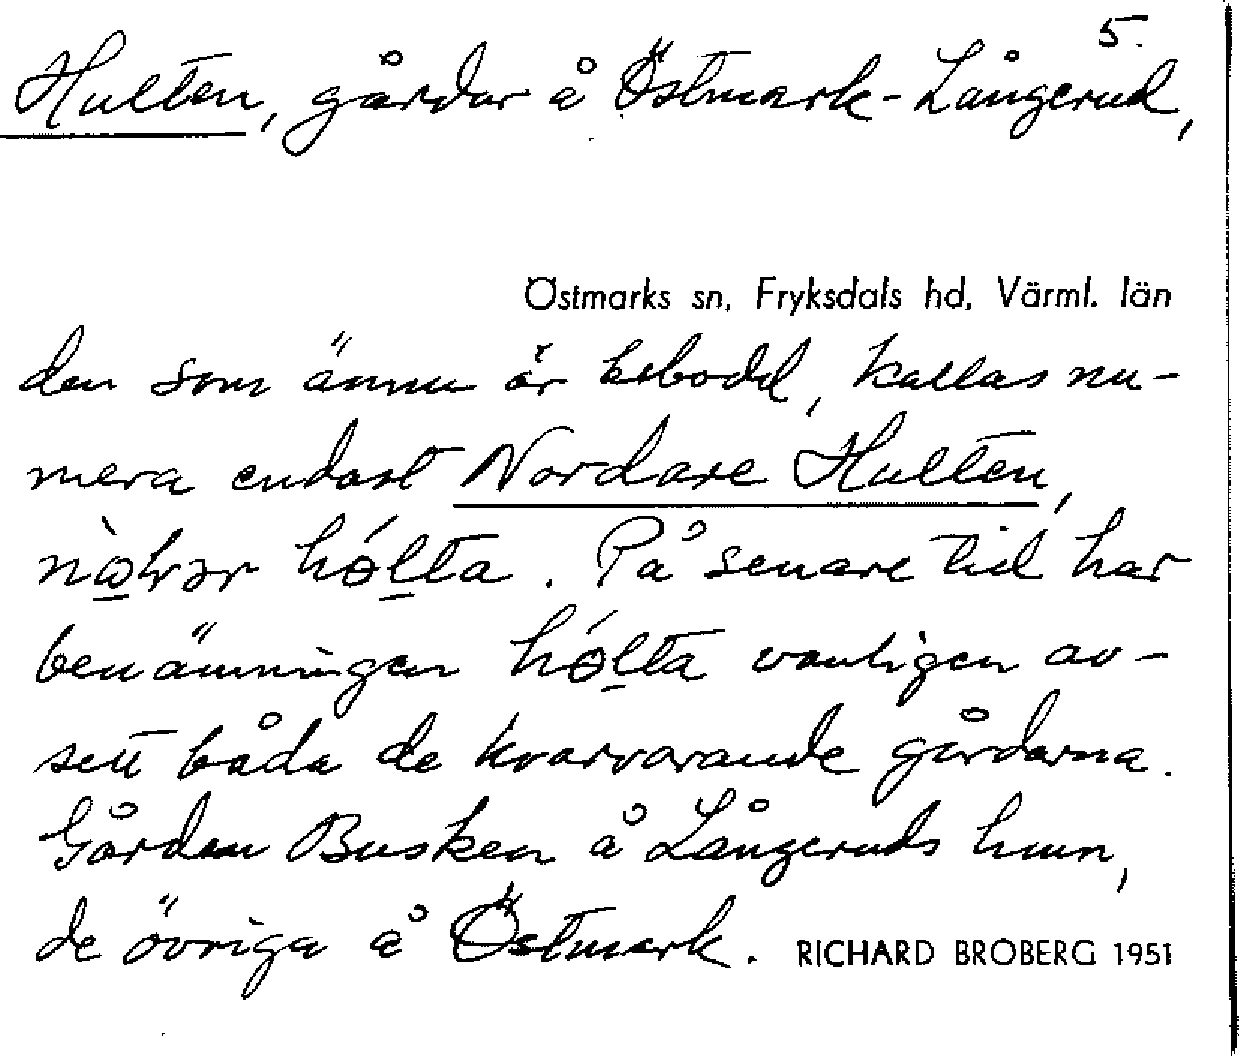 5.
Hulten, gårdar å Östmark-Långerud,
Östmarks sn, Fryksdals hd, Värml. län
den som ännu är bebodd, kallas nu-
mera endast Nordare Hulten,
hólta. På senare tid har
benämningen hólta vanligen av-
sett båda de kvarvarande gårdarna.
Gården Busken å Långeruds hmn,
de övriga å Östmark. RICHARD BROBERG 1951